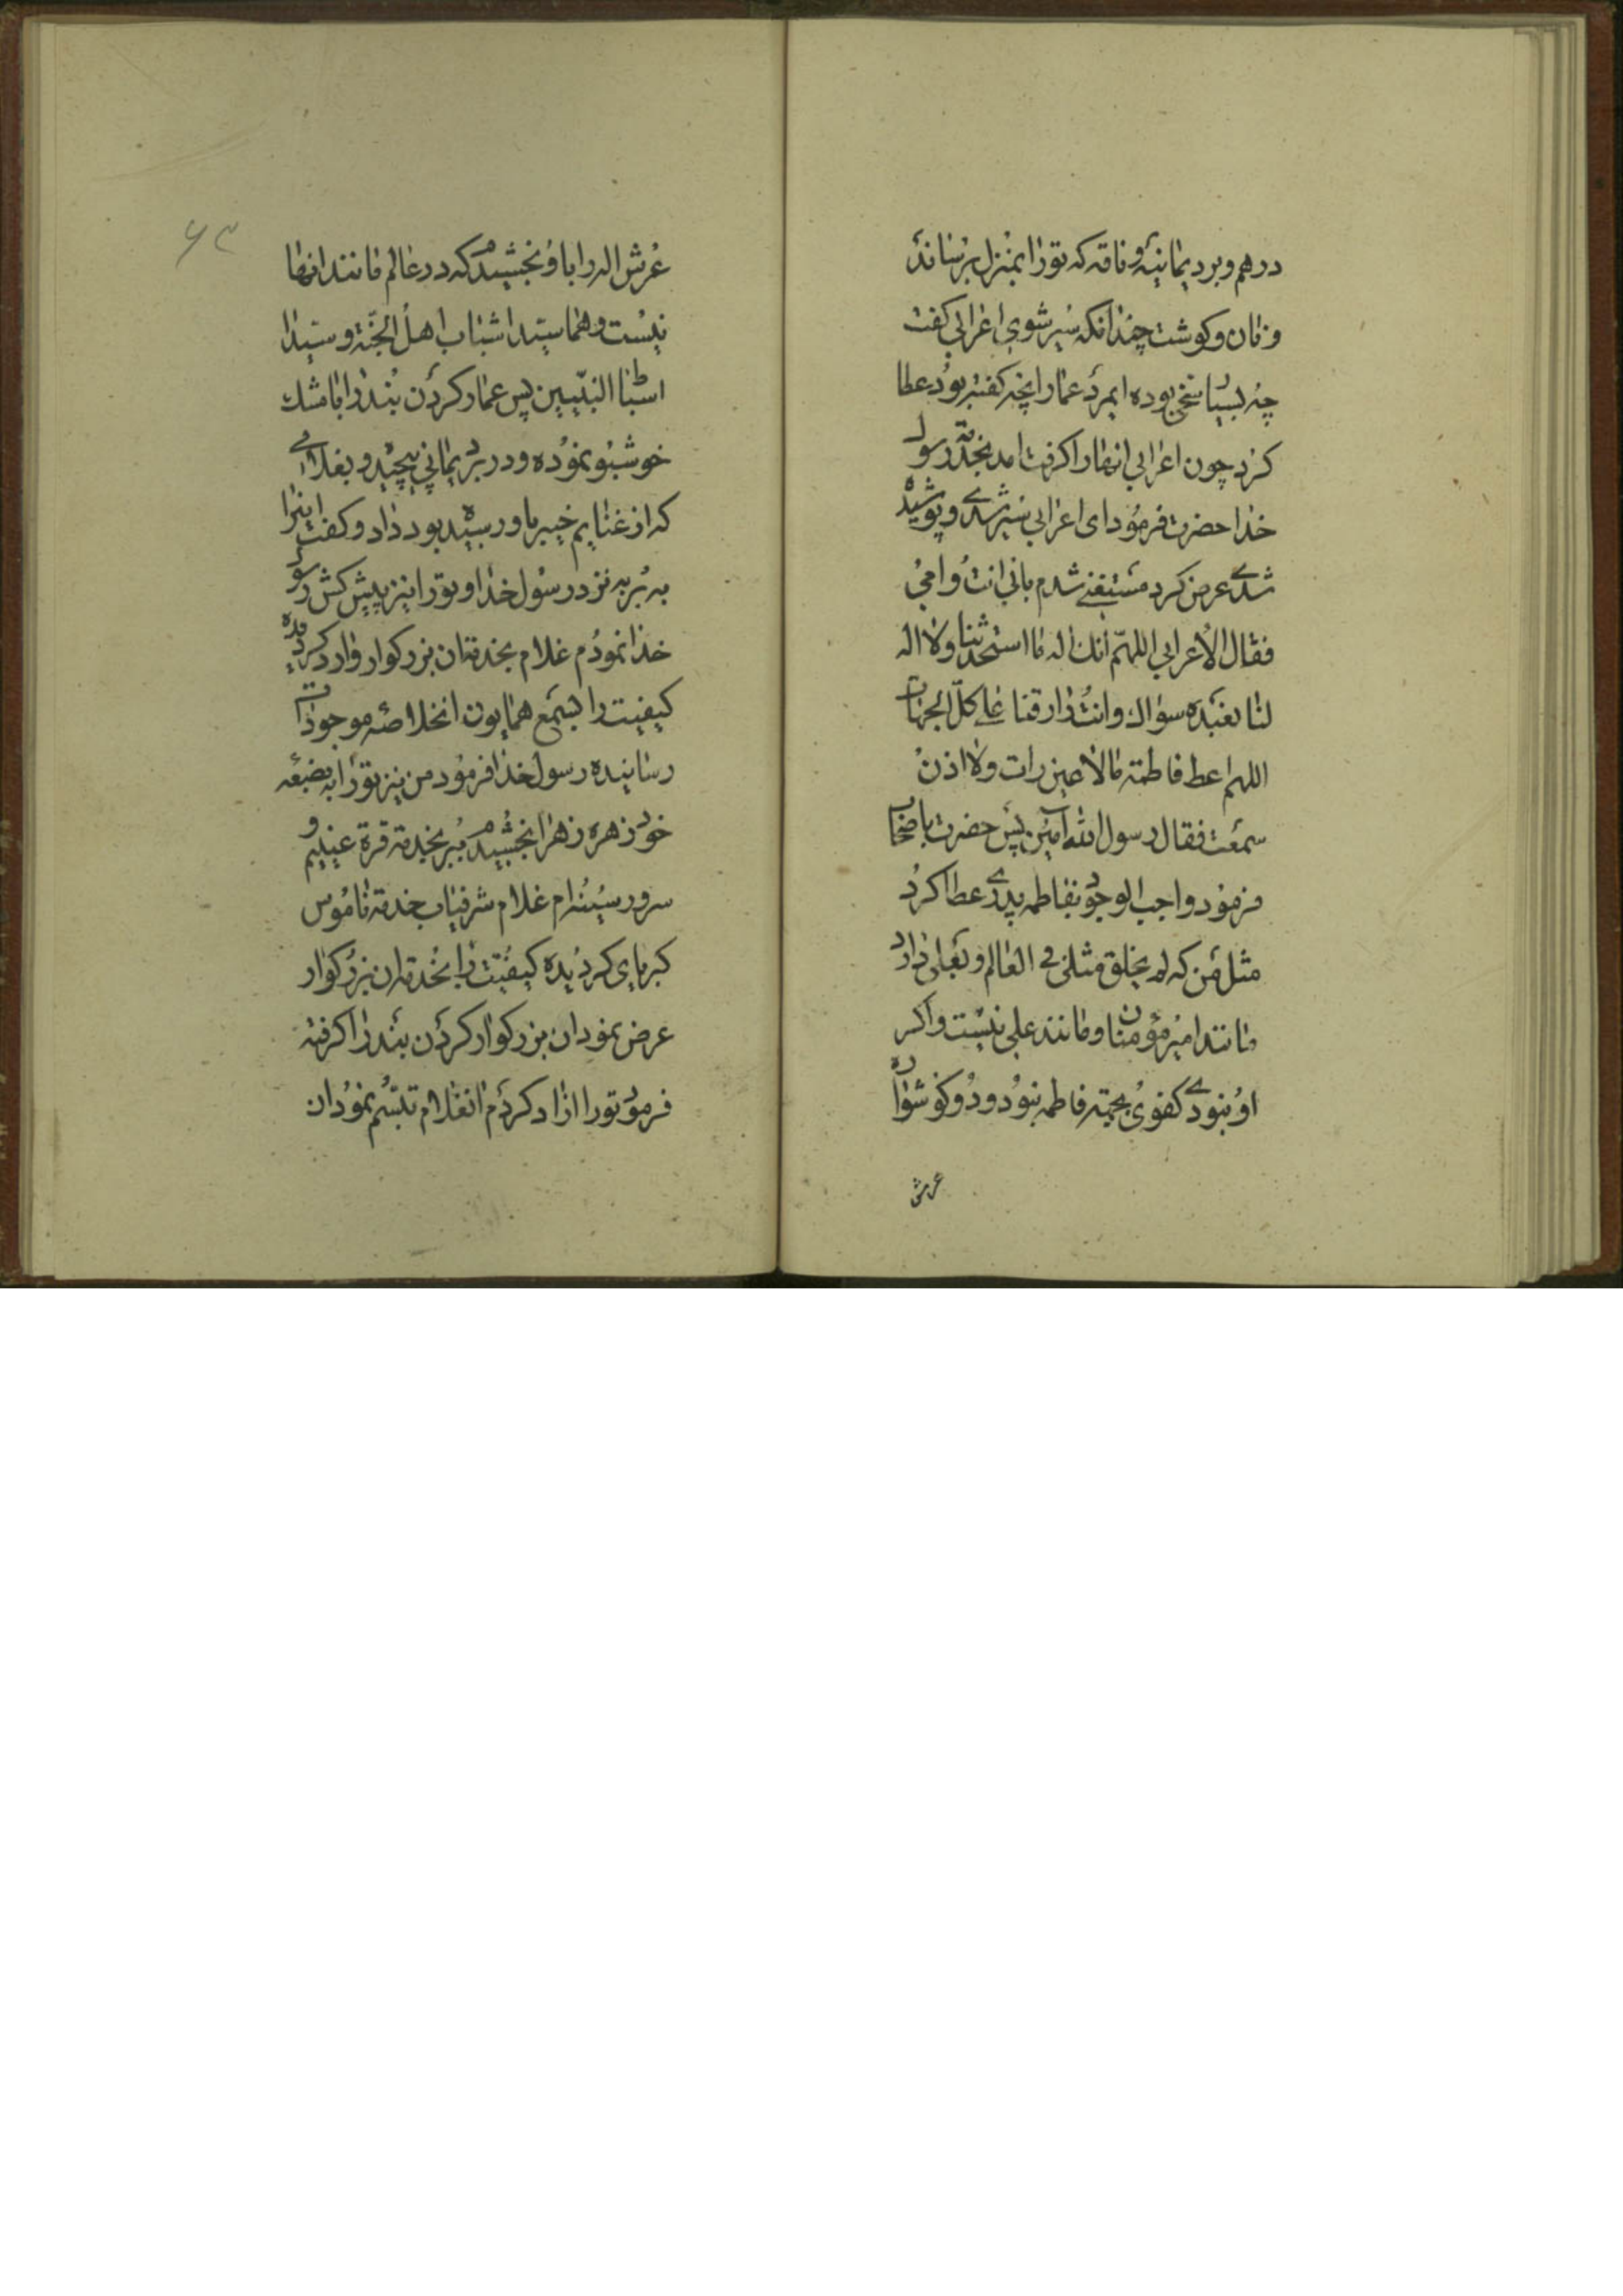 درهم و برد یمانیه و ناقه که تورا بمنزل برساند
و نان و کوشت چندانکه سیر شوی اعرابی کفت
چه بسیار سخی بوده ایمرد عمار انچه کفته بود عطا
کرد چون اعرابی انهارا کرفت امد بخدمة رسول
خدا حضرت فرمود ای اعرابی سیر شدی و پوشیده
شدی عرض کرد مستغنی شدم بابی انت و امی
فقال الاعرابی اللهم انک اله ما استحدثنا ولا اله
لنا نعبده سواک وانت رازقنا علی کل الجهات
اللهم اعط فاطمة مالا عین رات ولا اذن
سمعت فقال رسول الله آمین پس حضرت باصحاب
فرمود واجب الوجود بفاطمه پدری عطا کرد
مثل من که لم یخلق مثلی فی العالم و بعلی داد
مانند امیر مؤمنان و مانند علی نیست و اکر
او نبودی کفوی بجهته فاطمه نبود و دو کوشواره
عرش
۶۳
عرش اله را باو بخشیدم که در عالم مانند انها
نیست و هما سیدا شباب اهل الجنة و سیدا
اسباط النبیین پس عمار کردن بند را با مشک
خوشبو نموده و در برد یمانی پیچید و بغلامی
که از غنایم خیبر باو رسیده بود داد و کفت اینرا
به بر به نزد رسول خدا و تورا نیز پیش کش رسول
خدا نمودم غلام بخدمة ان بزرکوار وارد کردیده
کیفیت را بسمع همایون انخلاصه موجودات
رسانیده رسول خدا فرمود من نیز تورا به بضعه
خود زهره زهرا بخشیدم ببر بخدمة قرة عینیم و
سرور سینه ام غلام شرفیاب خدمة ناموس
کبریای کردیده کیفیت را بخدمة ان بزرکوار
عرض نمود ان بزرکوار کردن بند را کرفته
فرمود تورا ازاد کردم انغلام تبسم نمود ان